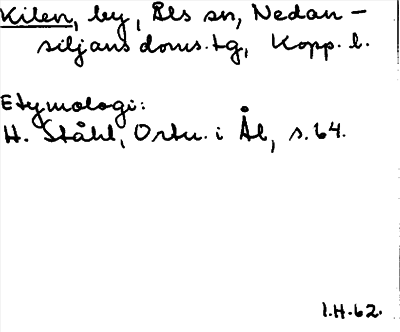 Kilen, by, Åls sn, Nedan-
siljans doms.tg, Kopp. l.
Etymologi:
H. Ståhl, Ortn. i Ål, s. 64.
I.H.62.